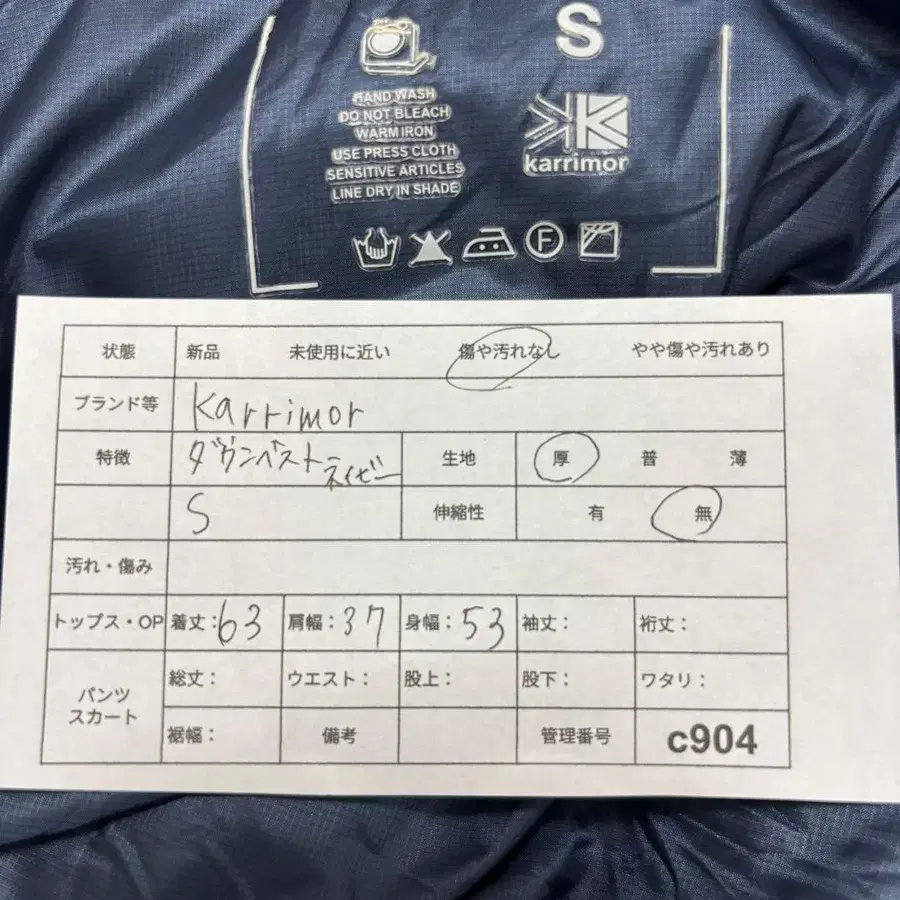 S
HAND WASH
DO NOT BLEACH
WARM IRON
USE PRESS CLOTH
SENSITIVE ARTICLES
LINE DRY IN SHADE
karrimor
F
状態 新品 未使用に近い 傷や汚れなし やや傷や汚れあり
ブランド等 Karrimor
特徴 ダウンベスト ネイビー 生地 厚 普 薄
S 伸縮性 有 無
汚れ・傷み
トップス・OP 着丈:63 肩幅:37 身幅:53 袖丈: 裄丈:
パンツ スカート 総丈: ウエスト: 股上: 股下: ワタリ:
裾幅: 備考 管理番号 c904